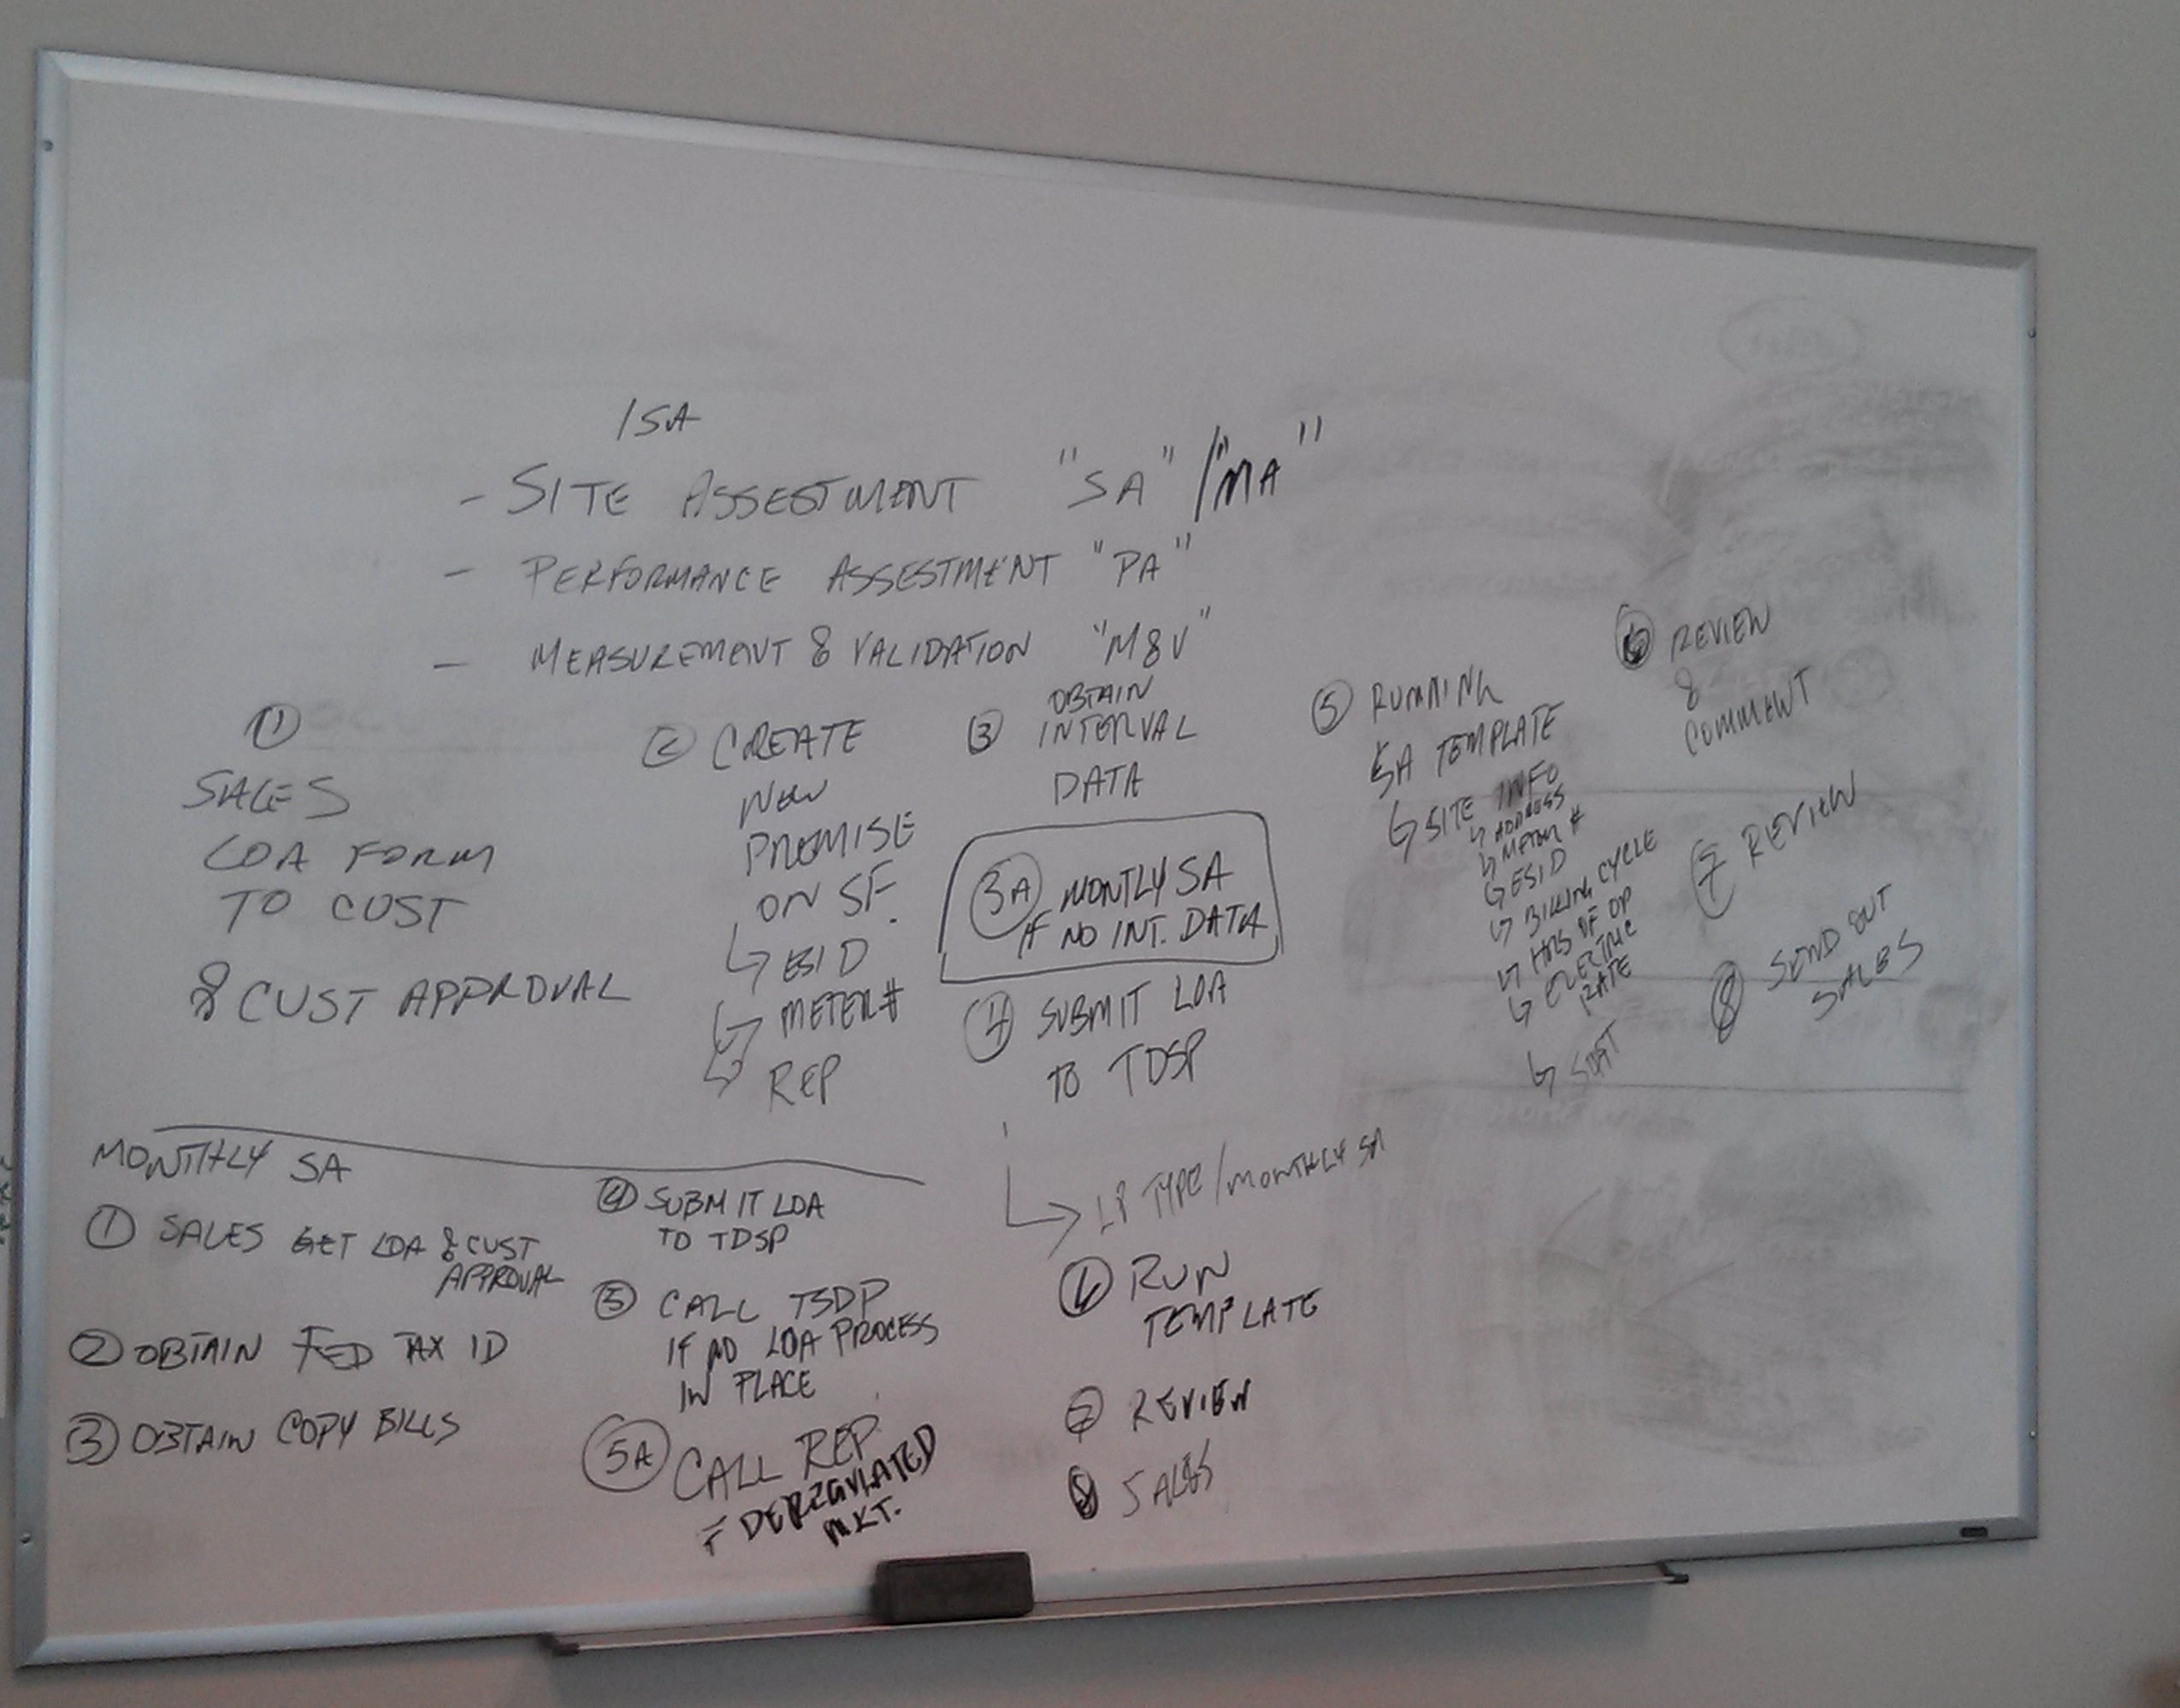 ISA
- SITE ASSESTMENT "SA" / "MA"
- PERFORMANCE ASSESTMENT "PA"
- MEASUREMENT & VALIDATION "M&V"
①
SALES
LOA FORM
TO CUST
& CUST APPROVAL
② CREATE
NEW
PREMISE
ON SF.
↳ ESID
↳ METER#
↳ REP
③ OBTAIN
INTERVAL
DATA
3A MONTLY SA
IF NO INT. DATA
④ SUBMIT LOA
TO TDSP
⑤ RUNNING
SA TEMPLATE
↳ SITE INFO
↳ ADDRESS
↳ METER #
↳ ESID
↳ BILLING CYCLE
↳ HRS OF OP
↳ ELECTRIC
RATE
↳
⑥ REVIEW
&
COMMENT
⑦ REVIEW
⑧ SEND OUT
SALES
MONTHLY SA
① SALES GET LOA & CUST
APPROVAL
② OBTAIN FED TAX ID
③ OBTAIN COPY BILLS
④ SUBMIT LOA
TO TDSP
⑤ CALL TSDP
IF NO LOA PROCESS
IN PLACE
5A CALL REP
= DEREGULATED
MKT.
→ TYPE/MONTHLY SA
⑥ RUN
TEMPLATE
⑦ REVIEW
⑧ SALES